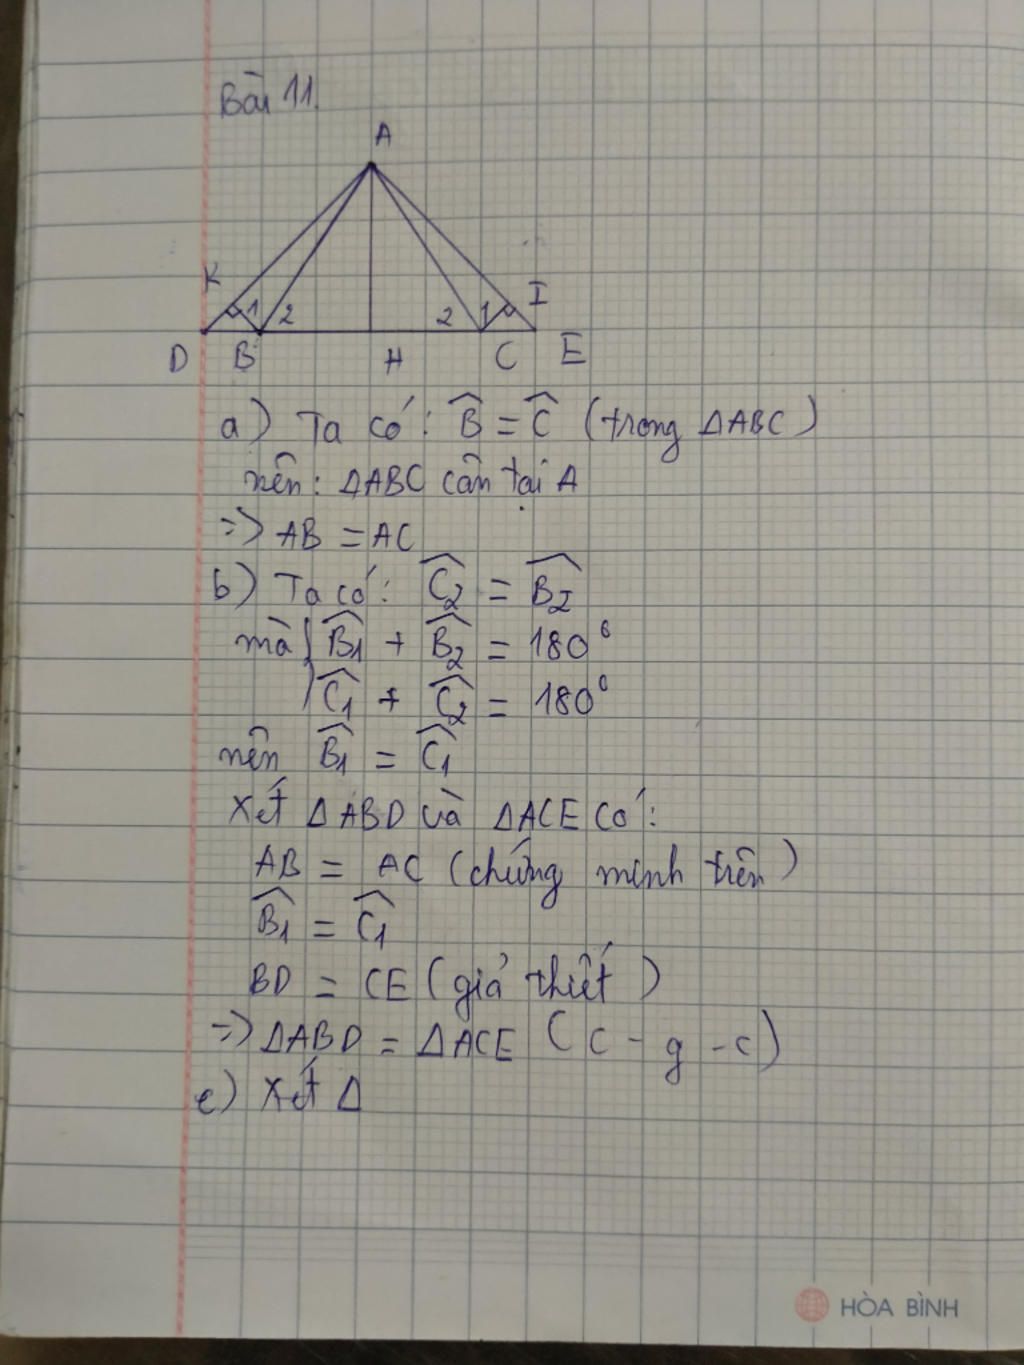 Bài 11.
A
K
1 2 2 1
I
D B H C E
a) Ta có: B̂ = Ĉ (trong ΔABC)
nên: ΔABC cân tại A
=> AB = AC
b) Ta có: Ĉ₂ = B̂₂
mà { B̂₁ + B̂₂ = 180⁰
Ĉ₁ + Ĉ₂ = 180⁰
nên B̂₁ = Ĉ₁
Xét ΔABD và ΔACE có:
AB = AC (chứng minh trên)
B̂₁ = Ĉ₁
BD = CE (giả thiết)
=> ΔABD = ΔACE (c - g - c)
c) Xét Δ
HÒA BÌNH